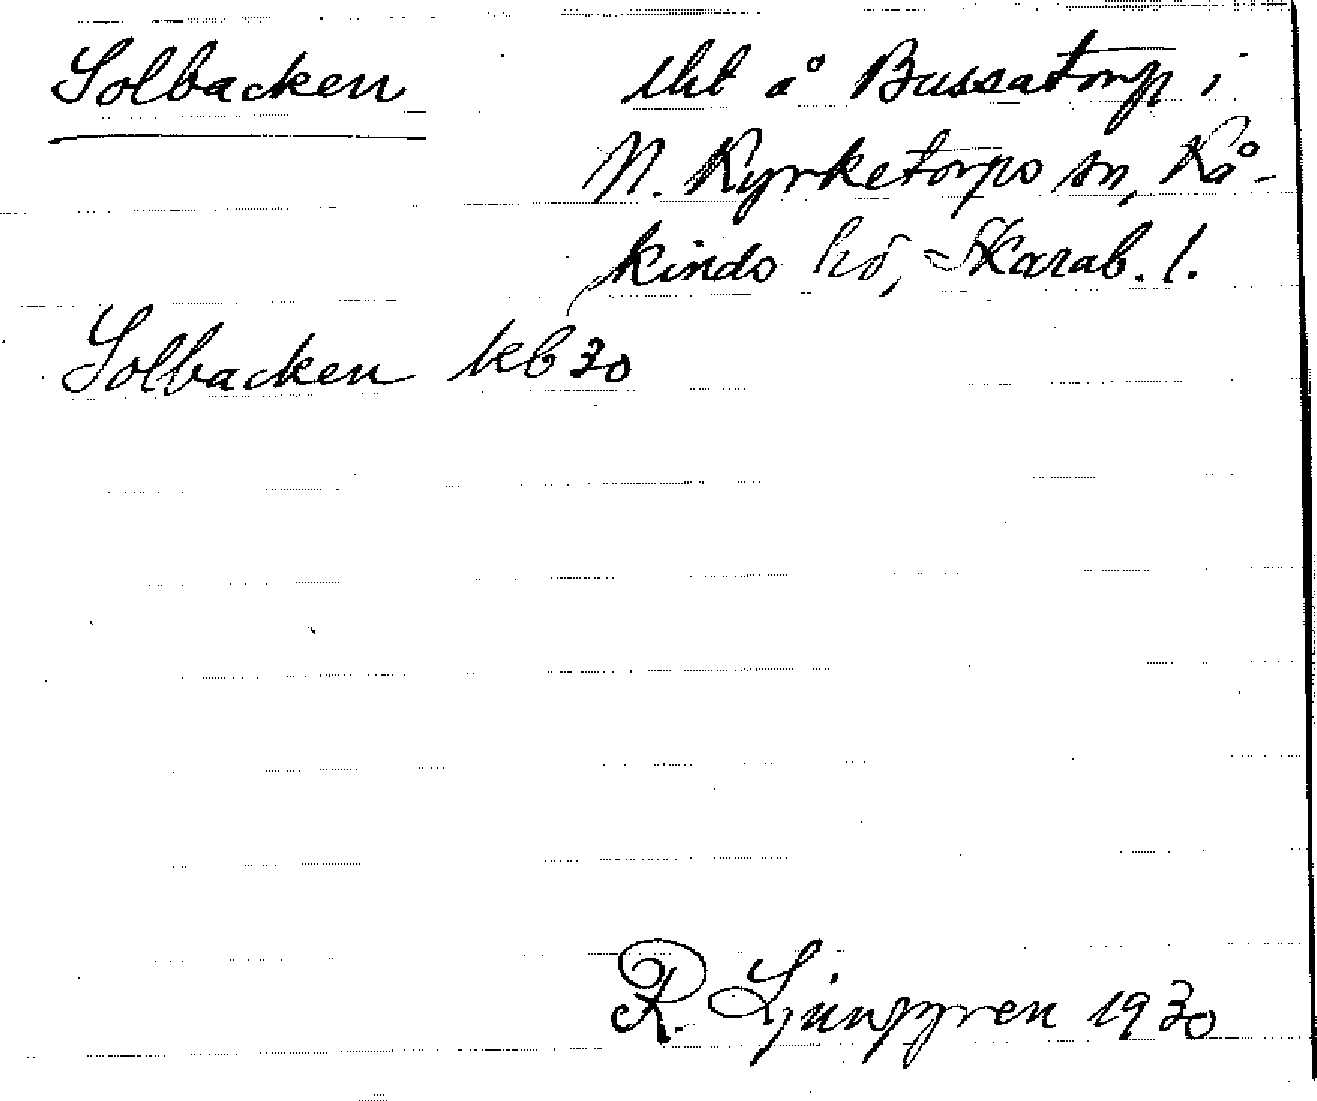 Solbacken
lht å Bussatorp i
N. Kyrketorps sn, Kå-
kinds hd, Skarab. l.
Solbacken kb 30
R. Ljunggren 1930